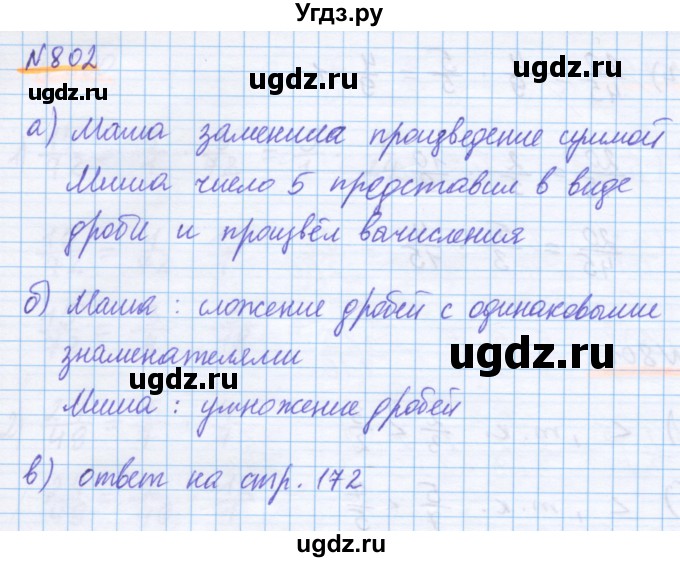 Угдз.ру
N802
ugdz.ru
ugdz.ru
ugdz.ru
а) Маша заменила произведение суммой
Миша число 5 представил в виде
дроби и произвёл вачисления
ugdz.ru
ugdz.ru
б) Маша : сложение дробей с одинаковыми
знаменателями
ugdz.ru
ugdz.ru
Миша : умножение дробей
в) ответ на стр. 172
ugdz.ru
ugdz.ru
ugdz.ru